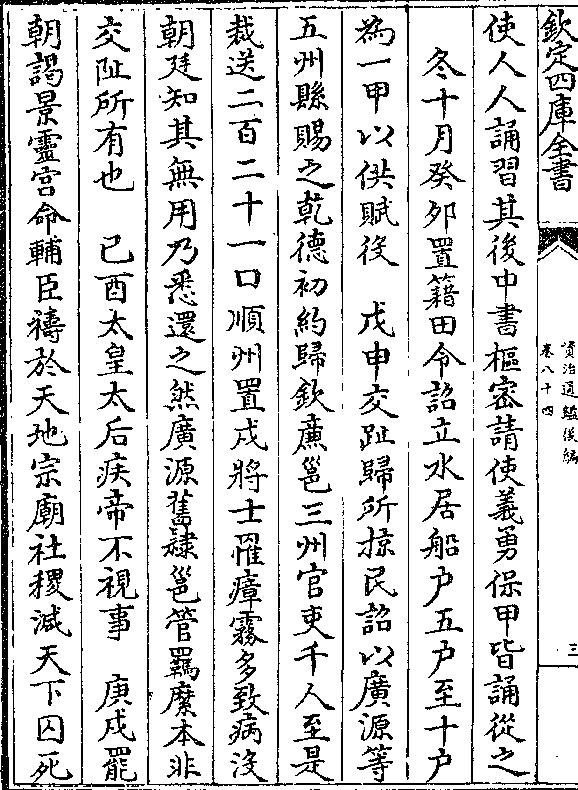 欽定四庫全書
資治通鑑後編
卷八十四
三
使人人誦習其後中書樞密請使義勇保甲皆誦從之
冬十月癸卯置籍田令詔立水居船户五户至十户
為一甲以供賦役　戊申交趾歸所掠民詔以廣源等
五州縣賜之乾德初約歸欽廉邕三州官吏千人至是
裁送二百二十一口順州置戍將士罹瘴霧多致病沒
朝廷知其無用乃悉還之然廣源舊隸邕管羈縻本非
交阯所有也　己酉太皇太后疾帝不視事　庚戌罷
朝謁景靈宫命輔臣禱於天地宗廟社稷減天下囚死